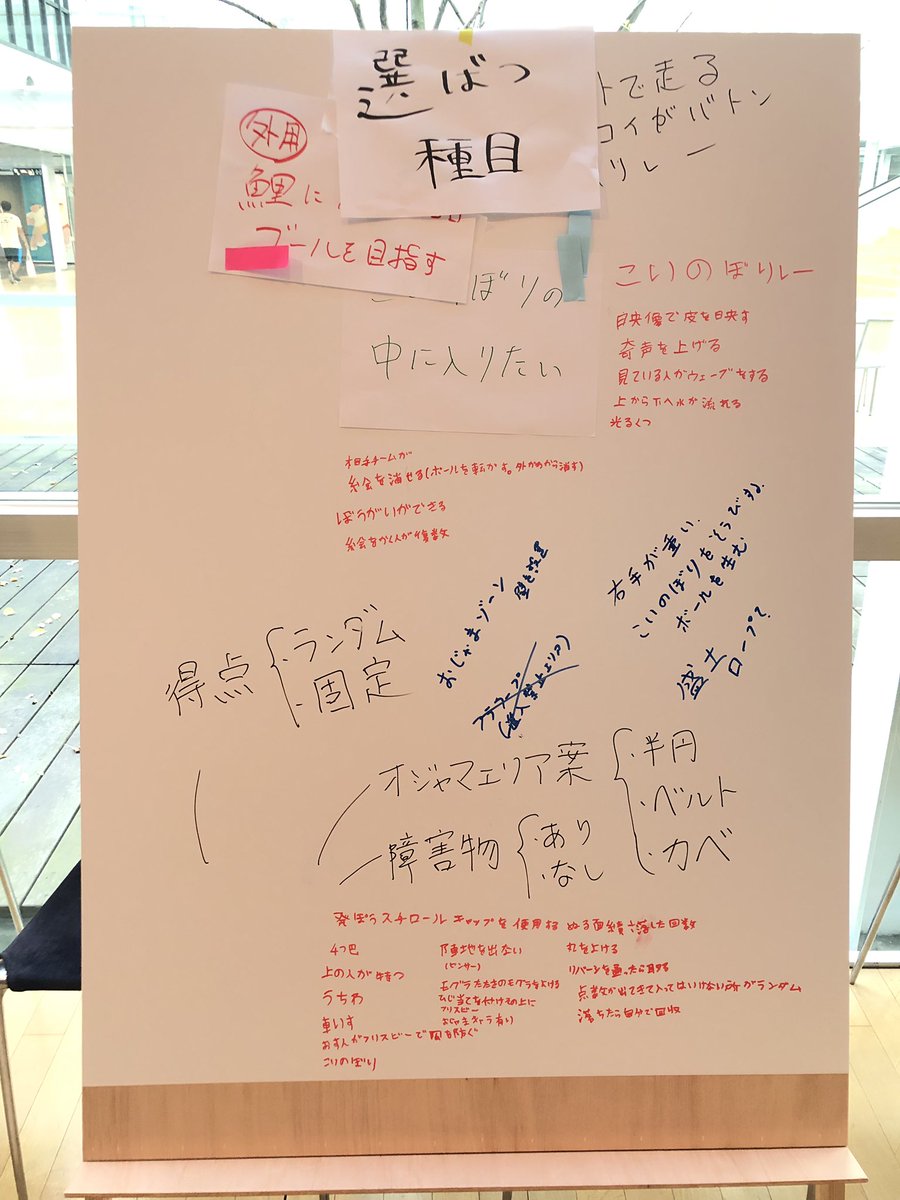 選ばつ
種目
トで走る
コイがバトン
リレー
外用
鯉に
ゴールを目指す
ぼりの
中に入りたい
こいのぼリレー
映像で皮を映す
奇声を上げる
見ている人がウェーブをする
上から下へ水が流れる
光るくつ
相手チームが
絵を消せる(ボールを転がす。外から消す)
ぼうがいができる
絵をかく人が復数
おじゃまゾーン
壁を設置
右手が重い、
こいのぼりをそうびする、
ボールを生む
盛土
ロープで
得点
・ランダム
・固定
オジャマエリア案
・半円
・ベルト
・カベ
障害物
・あり
・なし
発ぼうスチロールキャップを使用する
ぬる面績
落した回数
4つ巴
陣地を出ない
(センサー)
上の人が持つ
モグラたたきのモグラをよける
リバーンを通ったら
うちわ
ひじ当てを付けその上に
フリスビー
点数が出てきて入ってはいけない所がランダム
車いす
おじゃまキャラ有り
落ちたら自分で回収
おす人がフリスビーで風を防ぐ
こいのぼり